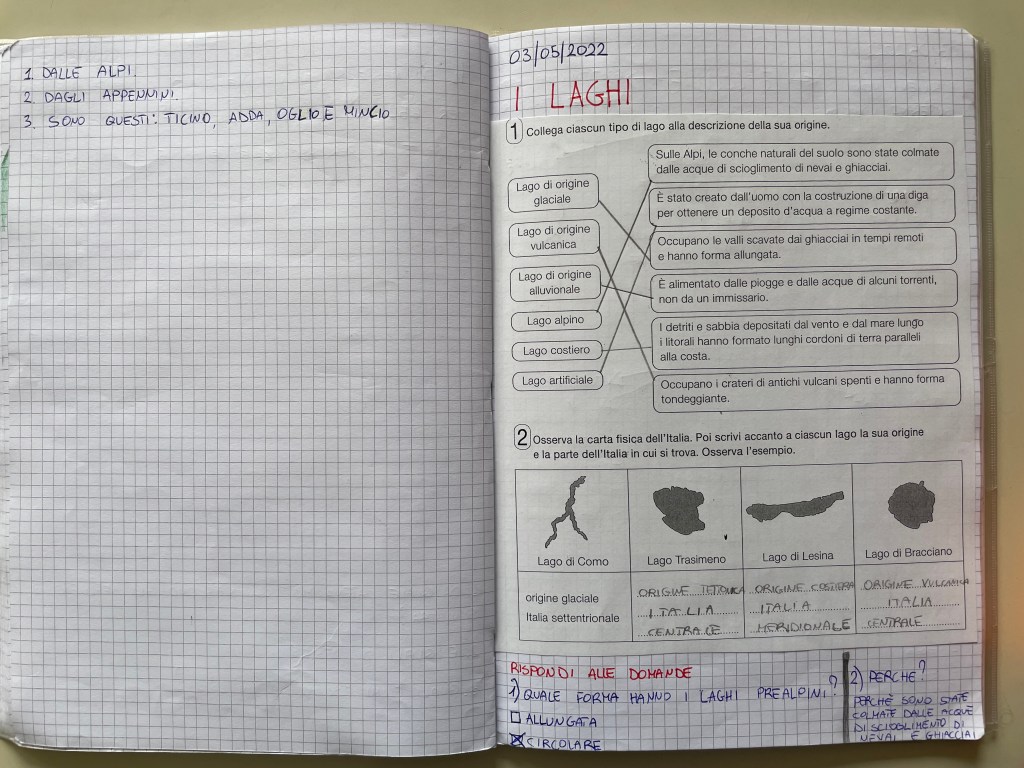 1. DALLE ALPI.
2. DAGLI APPENNINI.
3. SONO QUESTI: TICINO, ADDA, OGLIO E MINCIO
03/05/2022
I LAGHI
1 Collega ciascun tipo di lago alla descrizione della sua origine.
Lago di origine
glaciale
Lago di origine
vulcanica
Lago di origine
alluvionale
Lago alpino
Lago costiero
Lago artificiale
Sulle Alpi, le conche naturali del suolo sono state colmate
dalle acque di scioglimento di nevai e ghiacciai.
È stato creato dall'uomo con la costruzione di una diga
per ottenere un deposito d'acqua a regime costante.
Occupano le valli scavate dai ghiacciai in tempi remoti
e hanno forma allungata.
È alimentato dalle piogge e dalle acque di alcuni torrenti,
non da un immissario.
I detriti e sabbia depositati dal vento e dal mare lungo
i litorali hanno formato lunghi cordoni di terra paralleli
alla costa.
Occupano i crateri di antichi vulcani spenti e hanno forma
tondeggiante.
2 Osserva la carta fisica dell'Italia. Poi scrivi accanto a ciascun lago la sua origine
e la parte dell'Italia in cui si trova. Osserva l'esempio.
Lago di Como
origine glaciale
Italia settentrionale
Lago Trasimeno
ORIGINE TETTONICA
ITALIA
CENTRALE
Lago di Lesina
ORIGINE COSTIERA
ITALIA
MERIDIONALE
Lago di Bracciano
ORIGINE VULCANICA
ITALIA
CENTRALE
RISPONDI ALLE DOMANDE
1) QUALE FORMA HANNO I LAGHI PREALPINI?
ALLUNGATA
CIRCOLARE
2) PERCHE?
PERCHÈ SONO STATE
COLMATE DALLE ACQUE
DI SCIOGLIMENTO DI
NEVAI E GHIACCIAI